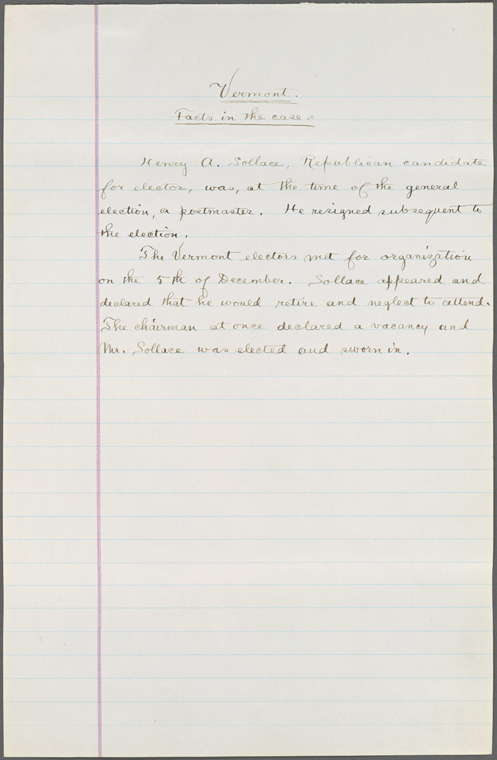 Vermont.
Facts in the case.
Henry A. Sollace, Republican candidate
for elector, was, at the time of the general
election, a postmaster. He resigned subsequent to
the election.
The Vermont electors met for organization
on the 5th of December. Sollace appeared and
declared that he would retire and neglect to attend.
The chairman at once declared a vacancy and
Mr. Sollace was elected and sworn in.